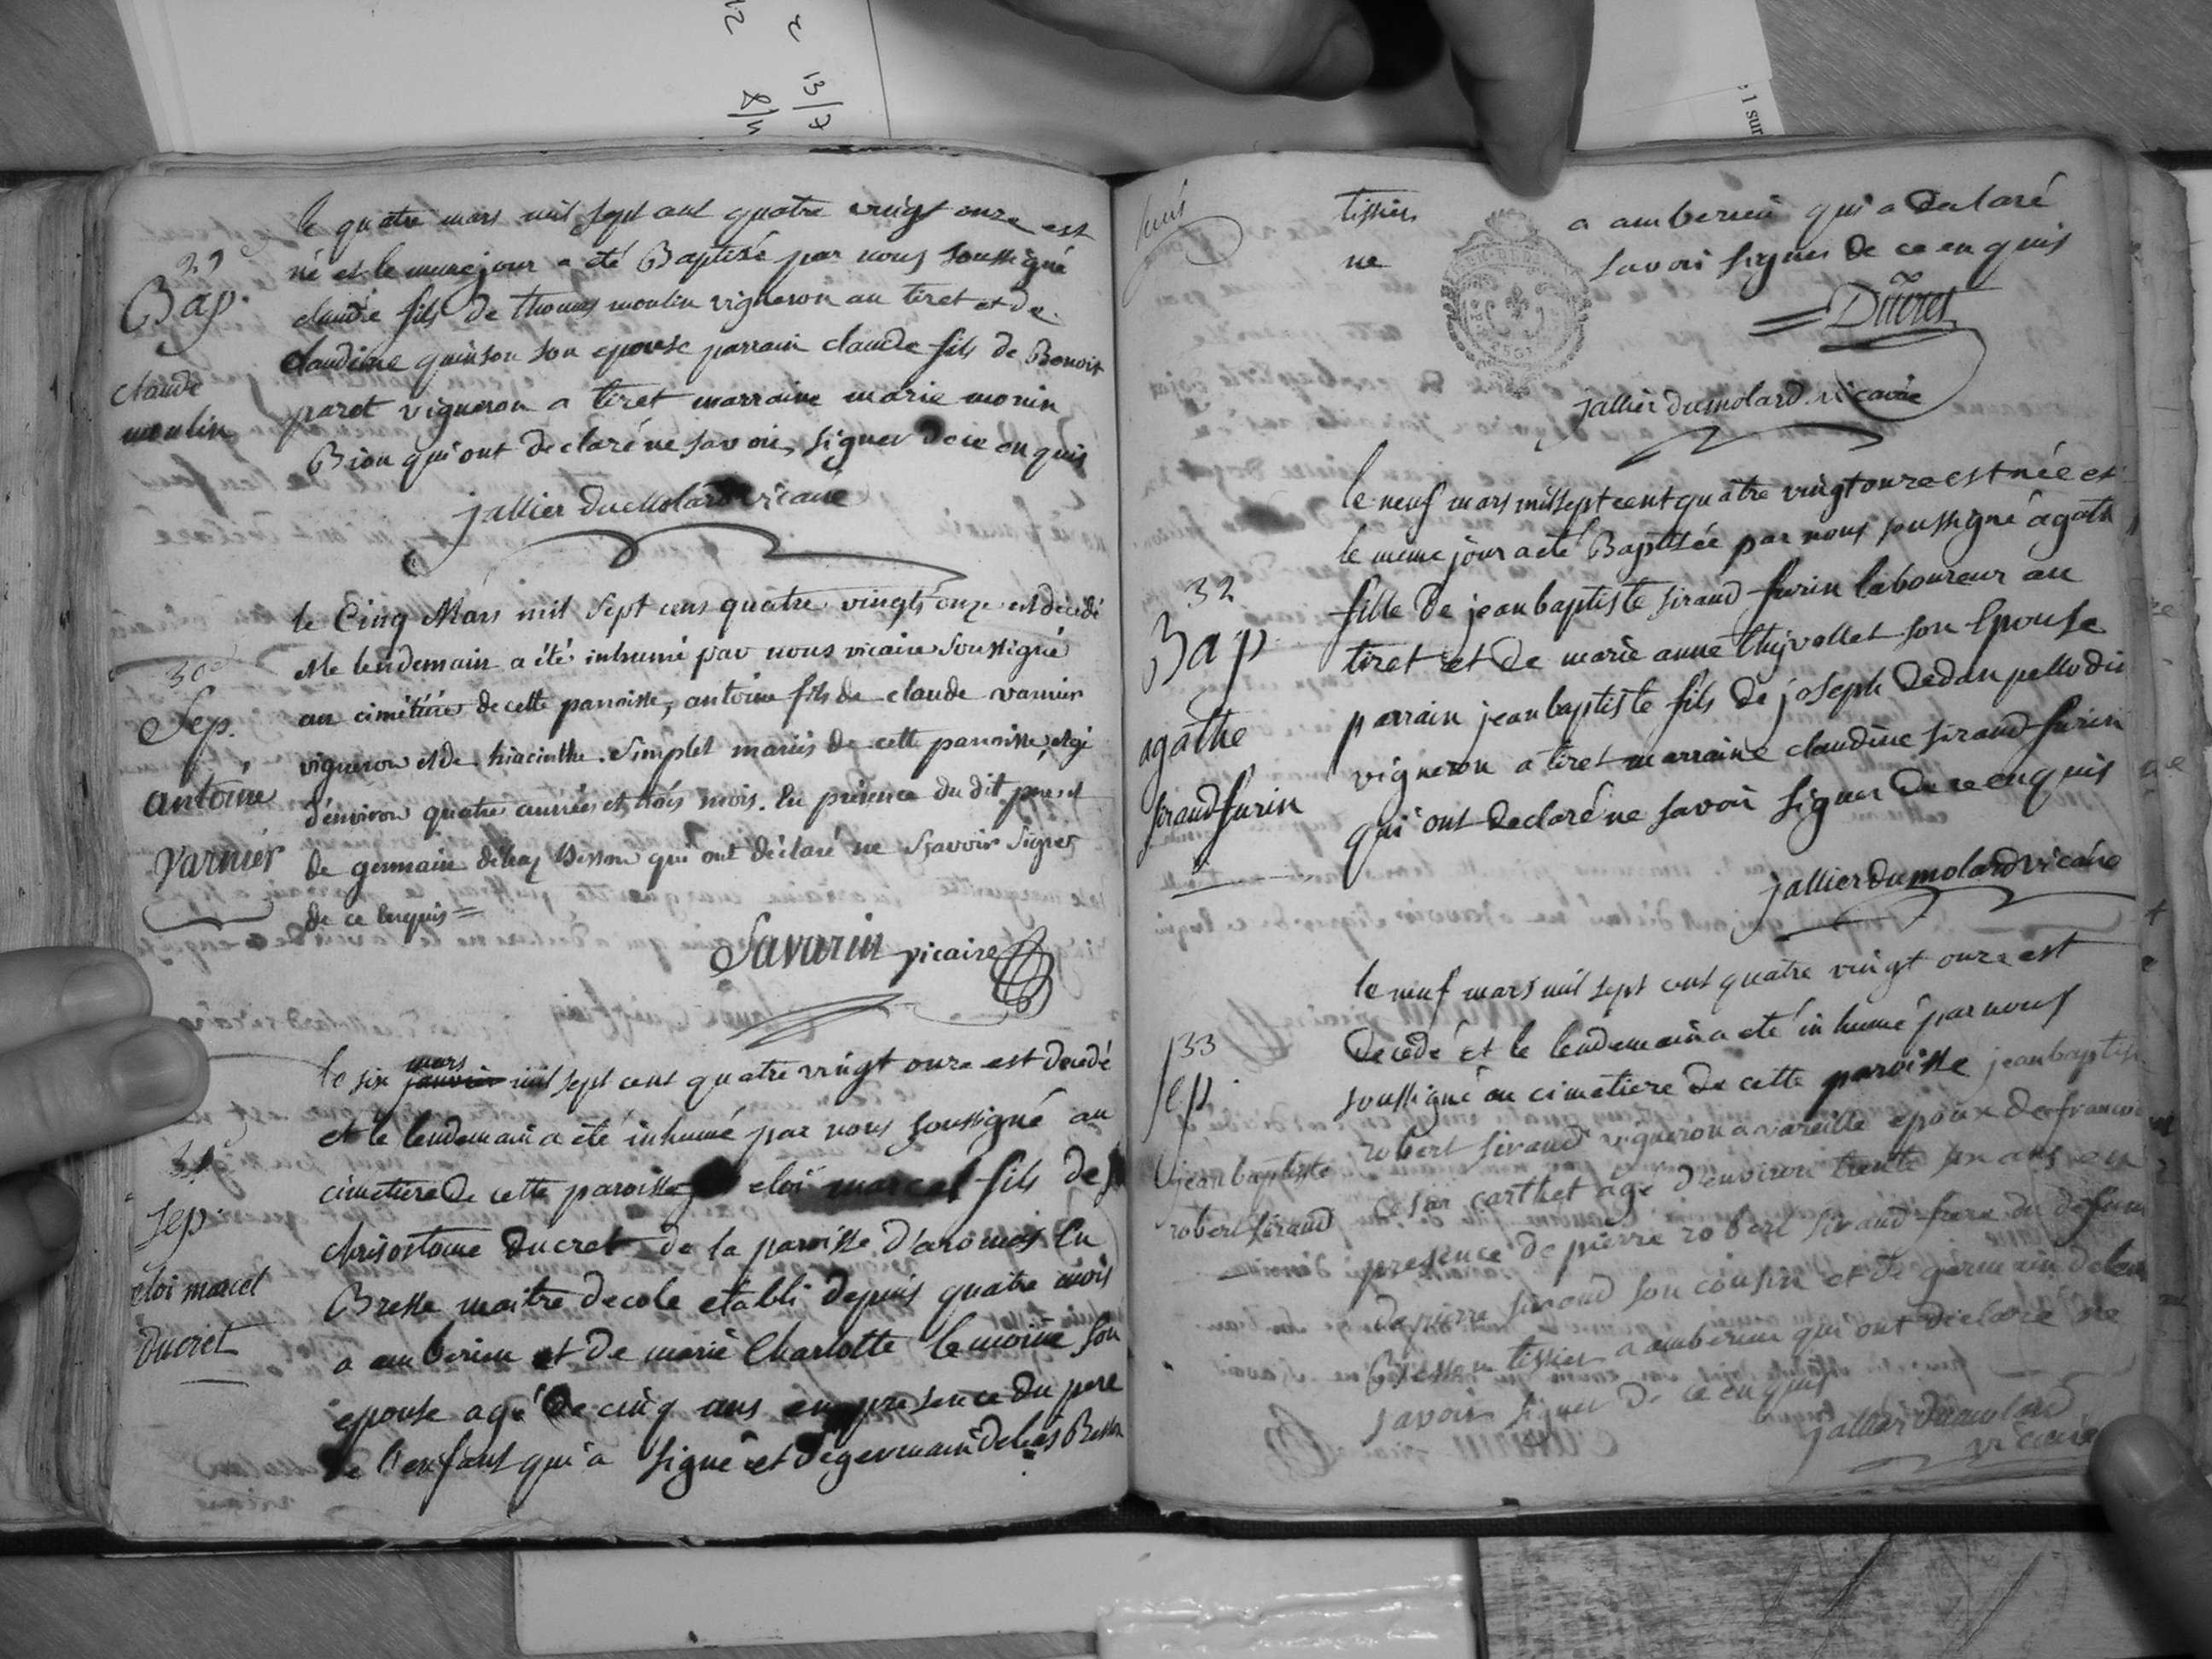 29
Bap.
claude
moulin
le quatre mars mil sept cent quatre vingt onze est
né et le meme jour a été Baptisé par nous soussigné
claude fils de thomas moulin vigneron au tiret et de
claudine quinson son epouse parrain claude fils de Benoit
paret vigneron a tiret marraine marie monin
Bion qui ont declaré ne savoir signer de ce enquis
jallier dumolard vicaire
30e
Sep.
antoine
varnier
le Cinq Mars mil sept cens quatre vingts onze est décédé
et le lendemain a été inhumé par nous vicaire soussigné
au cimétiére de cette parroisse, antoine fils de claude varnier
vigneron et de hiacinthe Simplet mariés de cette parroisse, agé
d'environ quatre années et trois mois. En présence du dit pere et
de germain déléaz Besson qui ont déclaré ne sçavoir signer
de ce enquis =
Savarin vicaire
31
Sep.
eloi marcel
ducret
mars
le six janvier mil sept cent quatre vingt onze est decedé
et le lendemain a été inhumé par nous soussigné au
cimetiere de cette paroisse eloi marcel fils de
chrisostome ducret de la paroisse d'aromas En
Bresse maitre decole etabli depuis quatre mois
a amberieu et de marie Charlotte lemoine son
epouse agé de cinq ans en presence du pere
de l'enfant qui a signé et de germain deleas Besson
tissier a amberieu qui a declaré
ne savoir signer de ce enquis
Ducret
jallier dumolard vicaire
32
Bap
agathe
sirand furin
le neuf mars mil sept cent quatre vingt onze est née et
le meme jour a eté Baptisée par nous soussigné agath
fille de jean baptiste sirand furin laboureur au
tiret et de marie anne thyvollet son Epouse
parrain jean baptiste fils de joseph dedan pellodin
vigneron a tiret marraine claudine sirand furin
qui ont declaré ne savoir signer de ce enquis
jallier dumolard vicaire
33
sep.
jean baptiste
robert sirand
le neuf mars mil sept cent quatre vingt onze est
decedé et le lendemain a eté inhumé par nous
soussigné au cimetiere de cette paroisse jean baptiste
robert sirand vigneron a vareille epoux de francoi
carthet agé d'environ trente six ans en
presence de pierre robert sirand frere du defunt
de pierre sirand son cousin et de germain deleas
Besson tissier a amberieu qui ont declaré ne
savoir signer de ce enquis
jallier dumolard
vicaire
13/7
8/4
1 sur